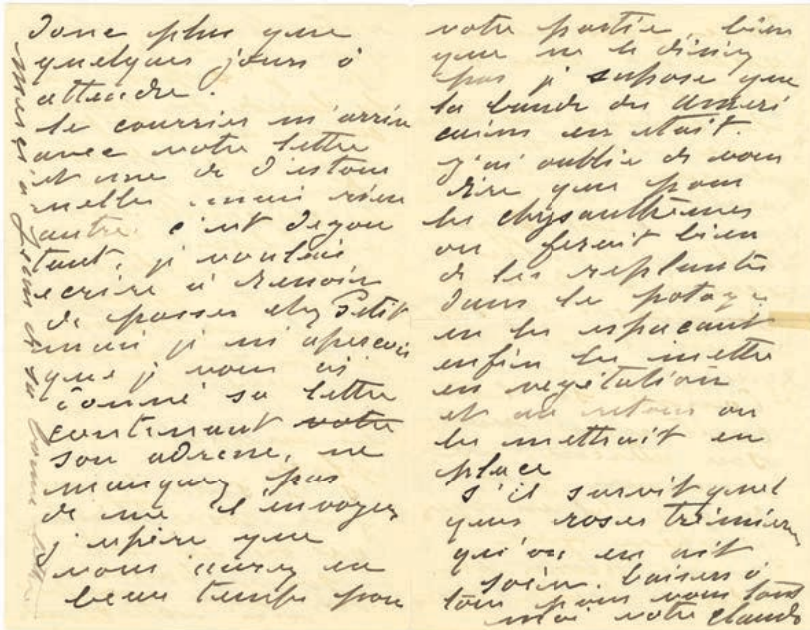 donc plus que
quelques jours à
attendre.
le courrier m'arrive
avec votre lettre
et une de d'estour
nelles mais rien
autre. c'est degou
tant, je voulais
ecrire à Renoir
de passer chez Petit
mais je m'aperçois
que je vous ai
donné sa lettre
contenant votre
son adresse, ne
manquez pas
de me l'envoyer
j'espère que
vous aurez eu
beau temps pour
votre partie, bien
que ne le disiez
pas je supose que
la bande des ameri
cains en etait.
j'ai oublie de vous
dire que pour
les chysanthèmes
on feroit bien
de les replanter
dans le potager
en les espacant
enfin les mettre
en vegétation
et au retour on
les mettrait en
place
s'il survit quel
ques roses trèmieres
qu'on en ait
soin. baisers à
tous pour vous tous
moi votre claude
merci à Jean de sa bonne lettre